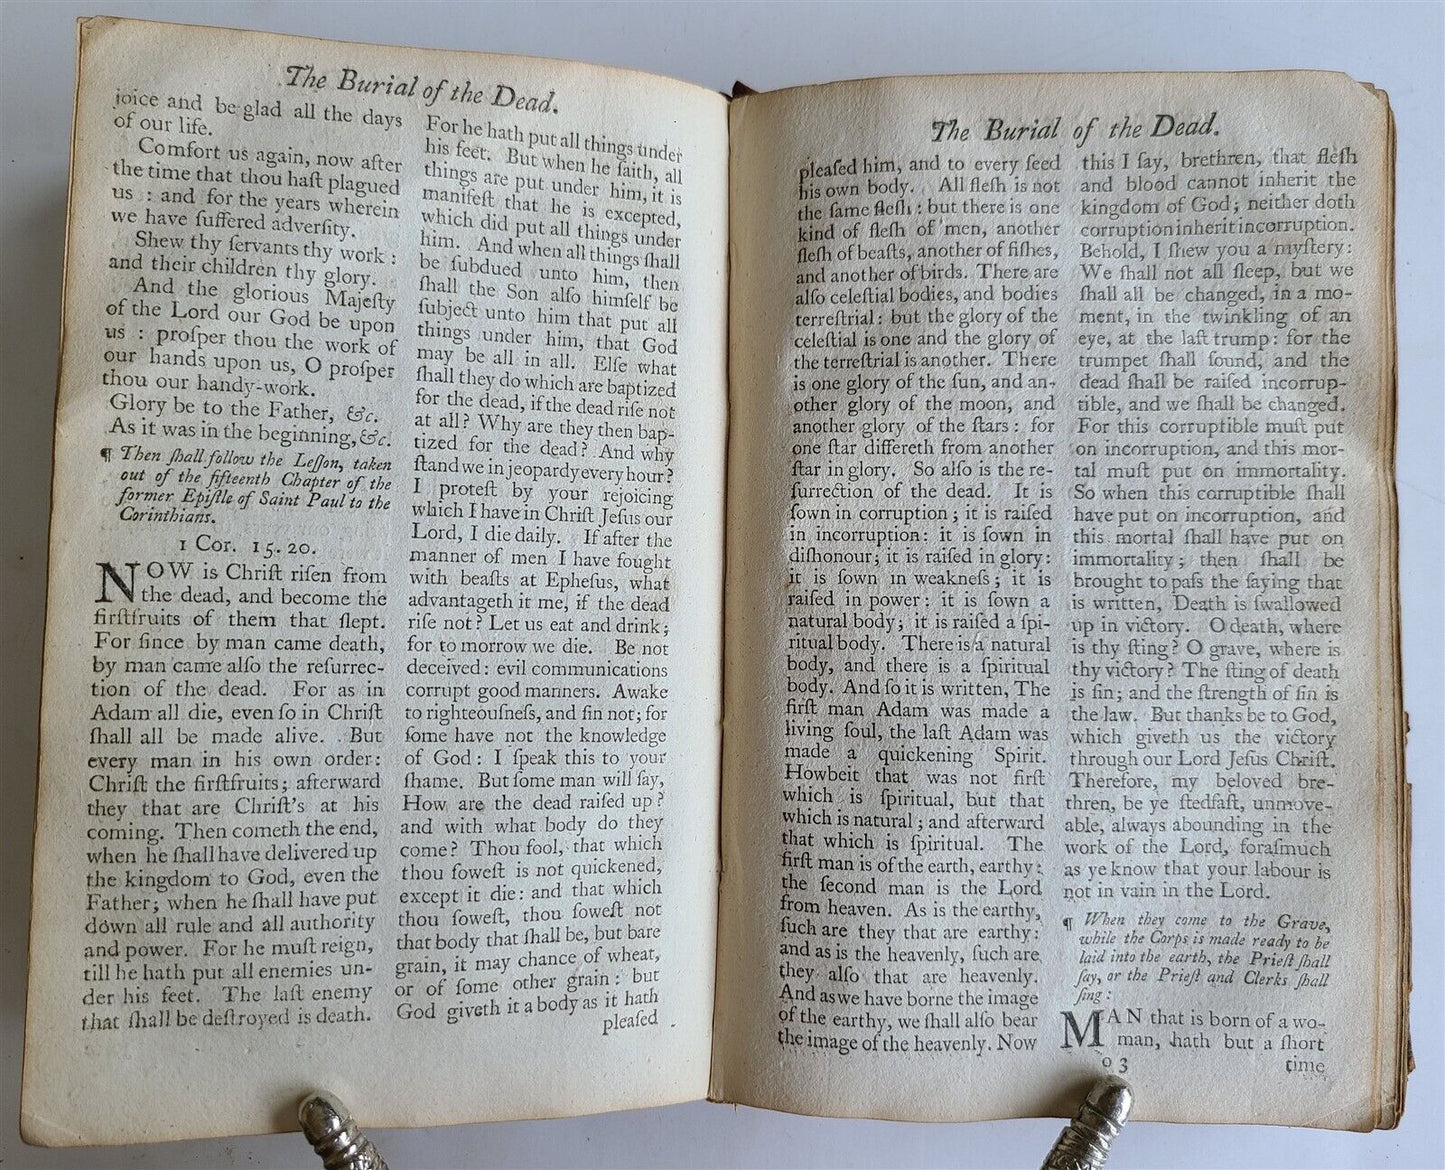 The Burial of the Dead.
joice and be glad all the days
of our life.
Comfort us again, now after
the time that thou haſt plagued
us : and for the years wherein
we have ſuffered adverſity.
Shew thy ſervants thy work :
and their children thy glory.
And the glorious Majeſty
of the Lord our God be upon
us : proſper thou the work of
our hands upon us, O proſper
thou our handy-work.
Glory be to the Father, &c.
As it was in the beginning, &c.
¶ Then ſhall follow the Leſſon, taken
out of the fifteenth Chapter of the
former Epiſtle of Saint Paul to the
Corinthians.
1 Cor. 15. 20.
NOW is Chriſt riſen from
the dead, and become the
firſtfruits of them that ſlept.
For ſince by man came death,
by man came alſo the reſurrec-
tion of the dead. For as in
Adam all die, even ſo in Chriſt
ſhall all be made alive. But
every man in his own order:
Chriſt the firſtfruits; afterward
they that are Chriſt's at his
coming. Then cometh the end,
when he ſhall have delivered up
the kingdom to God, even the
Father; when he ſhall have put
down all rule and all authority
and power. For he muſt reign,
till he hath put all enemies un-
der his feet. The laſt enemy
that ſhall be deſtroyed is death.
For he hath put all things under
his feet. But when he ſaith, all
things are put under him, it is
manifeſt that he is excepted,
which did put all things under
him. And when all things ſhall
be ſubdued unto him, then
ſhall the Son alſo himſelf be
ſubject unto him that put all
things under him, that God
may be all in all. Elſe what
ſhall they do which are baptized
for the dead, if the dead riſe not
at all? Why are they then bap-
tized for the dead? And why
ſtand we in jeopardy every hour?
I proteſt by your rejoicing
which I have in Chriſt Jeſus our
Lord, I die daily. If after the
manner of men I have fought
with beaſts at Epheſus, what
advantageth it me, if the dead
riſe not? Let us eat and drink;
for to morrow we die. Be not
deceived: evil communications
corrupt good manners. Awake
to righteouſneſs, and ſin not; for
ſome have not the knowledge
of God: I ſpeak this to your
ſhame. But ſome man will ſay,
How are the dead raiſed up?
and with what body do they
come? Thou fool, that which
thou ſoweſt is not quickened,
except it die: and that which
thou ſoweſt, thou ſoweſt not
that body that ſhall be, but bare
grain, it may chance of wheat,
or of ſome other grain: but
God giveth it a body as it hath
pleaſed
The Burial of the Dead.
pleaſed him, and to every ſeed
his own body. All fleſh is not
the ſame fleſh: but there is one
kind of fleſh of men, another
fleſh of beaſts, another of fiſhes,
and another of birds. There are
alſo celeſtial bodies, and bodies
terreſtrial: but the glory of the
celeſtial is one and the glory of
the terreſtrial is another. There
is one glory of the ſun, and an-
other glory of the moon, and
another glory of the ſtars: for
one ſtar differeth from another
ſtar in glory. So alſo is the re-
ſurrection of the dead. It is
ſown in corruption; it is raiſed
in incorruption: it is ſown in
diſhonour; it is raiſed in glory:
it is ſown in weakneſs; it is
raiſed in power: it is ſown a
natural body; it is raiſed a ſpi-
ritual body. There is a natural
body, and there is a ſpiritual
body. And ſo it is written, The
firſt man Adam was made a
living ſoul, the laſt Adam was
made a quickening Spirit.
Howbeit that was not firſt
which is ſpiritual, but that
which is natural; and afterward
that which is ſpiritual. The
firſt man is of the earth, earthy:
the ſecond man is the Lord
from heaven. As is the earthy,
ſuch are they that are earthy:
and as is the heavenly, ſuch are
they alſo that are heavenly.
And as we have borne the image
of the earthy, we ſhall alſo bear
the image of the heavenly. Now
this I ſay, brethren, that fleſh
and blood cannot inherit the
kingdom of God; neither doth
corruption inherit incorruption.
Behold, I ſhew you a myſtery:
We ſhall not all ſleep, but we
ſhall all be changed, in a mo-
ment, in the twinkling of an
eye, at the laſt trump: for the
trumpet ſhall ſound, and the
dead ſhall be raiſed incorrup-
tible, and we ſhall be changed.
For this corruptible muſt put
on incorruption, and this mor-
tal muſt put on immortality.
So when this corruptible ſhall
have put on incorruption, and
this mortal ſhall have put on
immortality; then ſhall be
brought to paſs the ſaying that
is written, Death is ſwallowed
up in victory. O death, where
is thy ſting? O grave, where is
thy victory? The ſting of death
is ſin; and the ſtrength of ſin is
the law. But thanks be to God,
which giveth us the victory
through our Lord Jeſus Chriſt.
Therefore, my beloved bre-
thren, be ye ſtedfaſt, unmove-
able, always abounding in the
work of the Lord, foraſmuch
as ye know that your labour is
not in vain in the Lord.
¶ When they come to the Grave,
while the Corps is made ready to be
laid into the earth, the Prieſt ſhall
ſay, or the Prieſt and Clerks ſhall
ſing:
MAN that is born of a wo-
man, hath but a ſhort
O 3 time